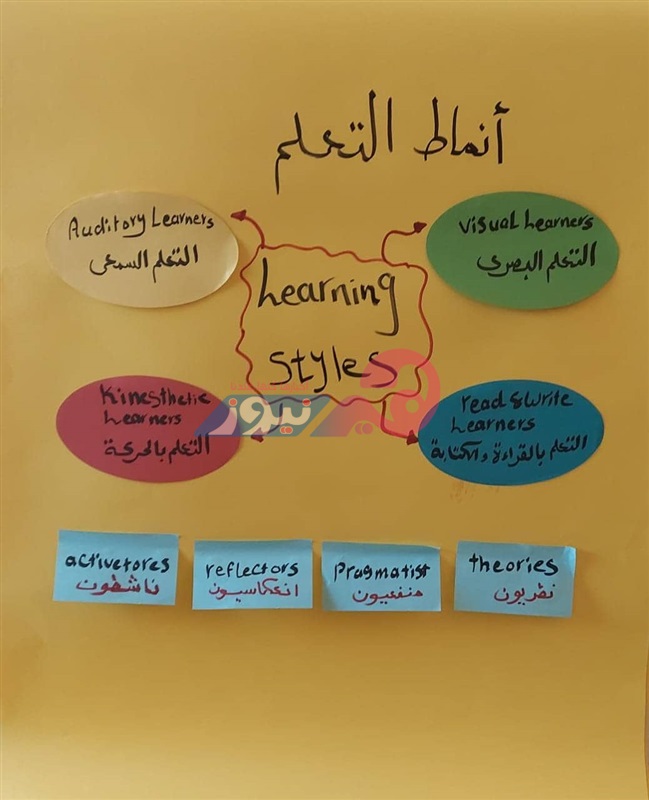 أنماط التعلم
Auditory Learners
التعلم السمعى
Visual Learners
التعلم البصرى
Learning
styles
Kinesthetic
Learners
التعلم بالحركة
read & write
Learners
التعلم بالقراءة والكتابة
نيوز
activetores
ناشطون
reflectors
انعكاسيون
Pragmatist
منفعيون
theories
نظريون